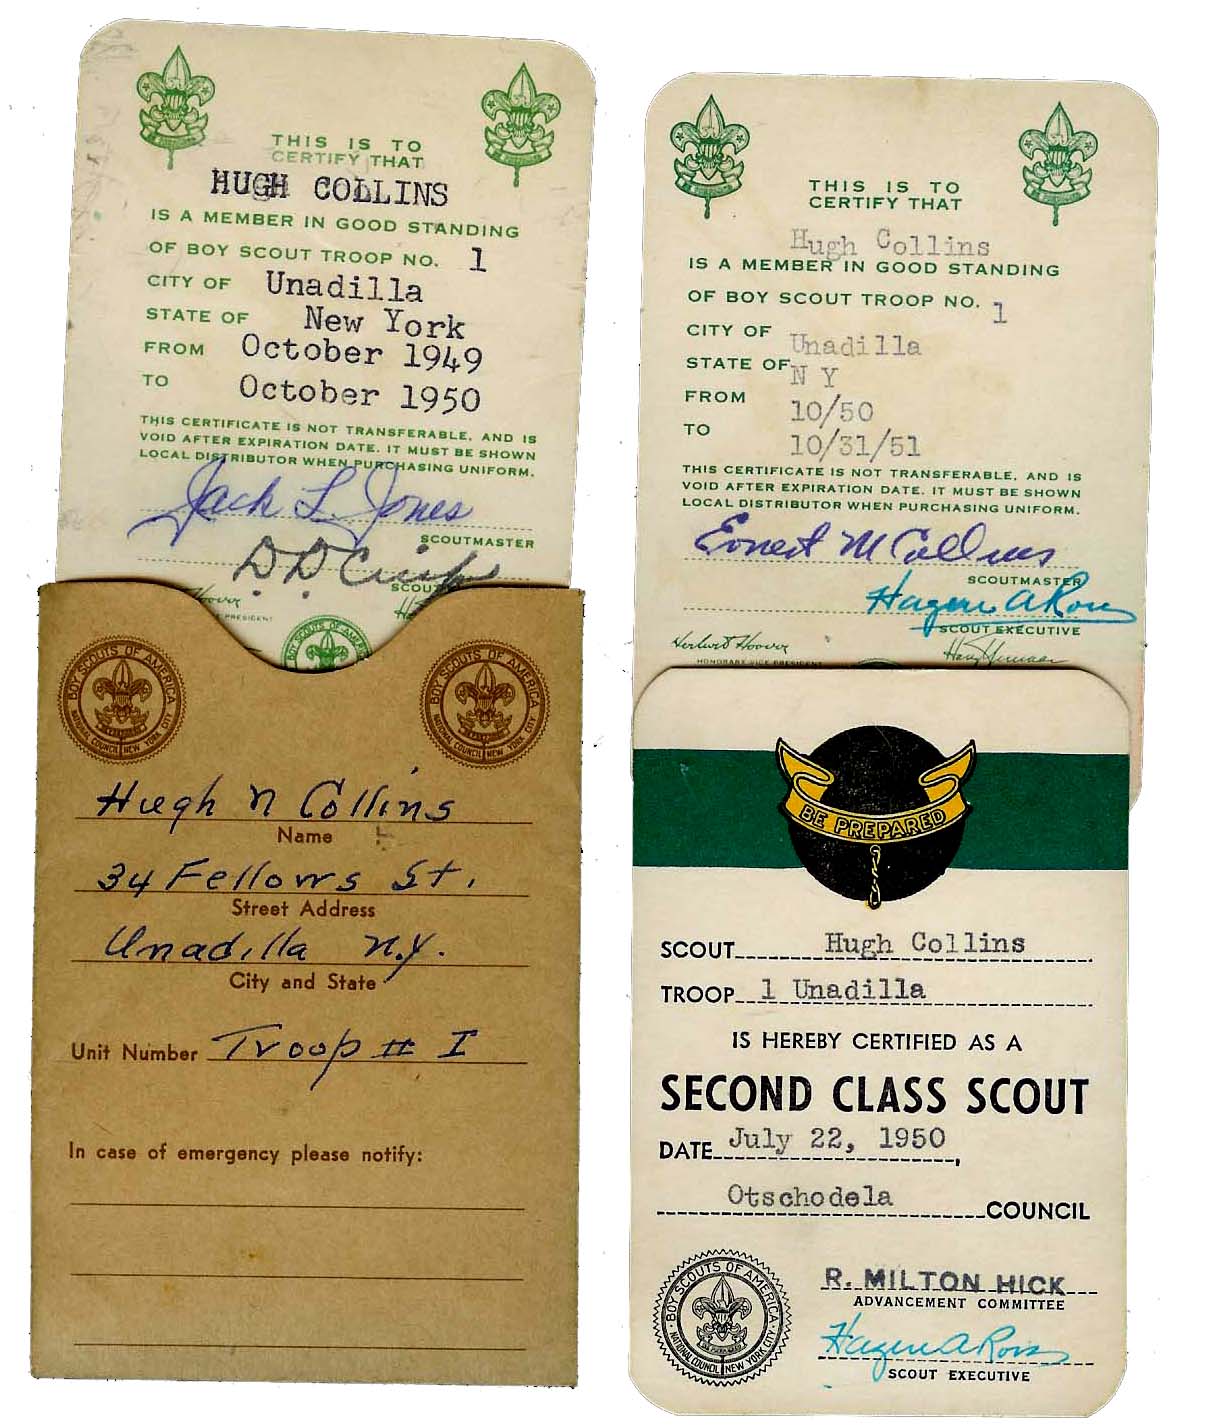 THIS IS TO
CERTIFY THAT
HUGH COLLINS
IS A MEMBER IN GOOD STANDING
OF BOY SCOUT TROOP NO. 1
CITY OF Unadilla
STATE OF New York
FROM October 1949
TO October 1950
THIS CERTIFICATE IS NOT TRANSFERABLE, AND IS
VOID AFTER EXPIRATION DATE. IT MUST BE SHOWN
LOCAL DISTRIBUTOR WHEN PURCHASING UNIFORM.
Jack L. Jones
SCOUTMASTER
SCOUT
Hoover
PRESIDENT
BOY SCOUTS OF AMERICA
BOY SCOUTS OF AMERICA
NATIONAL COUNCIL NEW YORK CITY
BOY SCOUTS OF AMERICA
NATIONAL COUNCIL NEW YORK CITY
Hugh N Collins
Name
34 Fellows St.
Street Address
Unadilla N.Y.
City and State
Unit Number Troop # I
In case of emergency please notify:
THIS IS TO
CERTIFY THAT
Hugh Collins
IS A MEMBER IN GOOD STANDING
OF BOY SCOUT TROOP NO. 1
CITY OF Unadilla
STATE OF N Y
FROM 10/50
TO 10/31/51
THIS CERTIFICATE IS NOT TRANSFERABLE, AND IS
VOID AFTER EXPIRATION DATE. IT MUST BE SHOWN
LOCAL DISTRIBUTOR WHEN PURCHASING UNIFORM.
Ernest M Collins
SCOUTMASTER
Hagen A Ross
SCOUT EXECUTIVE
Herbert Hoover
HONORARY VICE PRESIDENT
BE PREPARED
SCOUT Hugh Collins
TROOP 1 Unadilla
IS HEREBY CERTIFIED AS A
SECOND CLASS SCOUT
DATE July 22, 1950,
Otschodela COUNCIL
BOY SCOUTS OF AMERICA
NATIONAL COUNCIL NEW YORK CITY
R. MILTON HICK
ADVANCEMENT COMMITTEE
Hagen A Ross
SCOUT EXECUTIVE